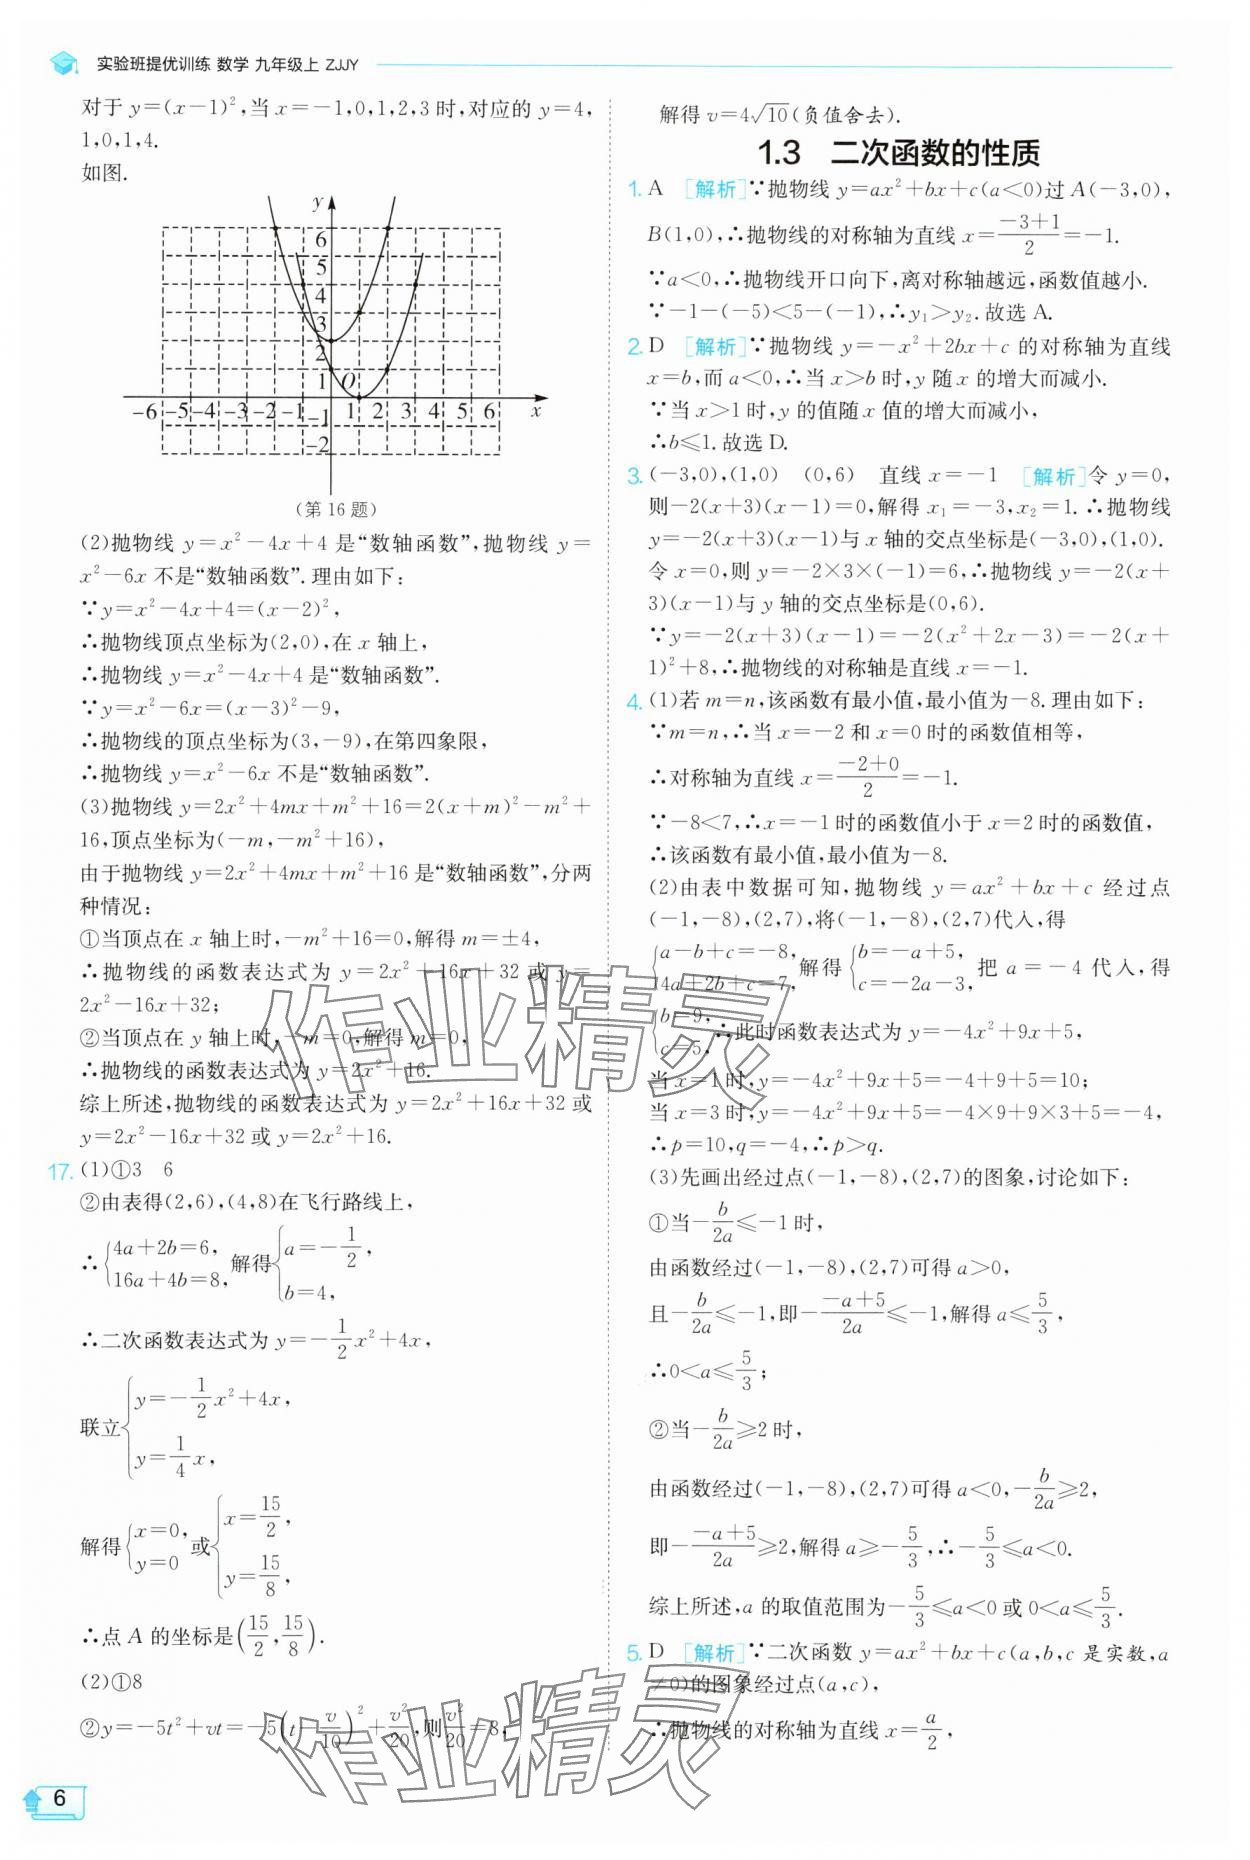 实验班提优训练 数学 九年级上 ZJJY
对于 y=(x-1)²,当 x=-1,0,1,2,3 时,对应的 y=4,
1,0,1,4.
如图.
y
6
5
4
3
2
1
O
-6 -5 -4 -3 -2 -1 1 2 3 4 5 6 x
-1
-2
(第 16 题)
(2)抛物线 y=x²-4x+4 是“数轴函数”,抛物线 y=
x²-6x 不是“数轴函数”.理由如下:
∵y=x²-4x+4=(x-2)²,
∴抛物线顶点坐标为(2,0),在 x 轴上,
∴抛物线 y=x²-4x+4 是“数轴函数”.
∵y=x²-6x=(x-3)²-9,
∴抛物线的顶点坐标为(3,-9),在第四象限,
∴抛物线 y=x²-6x 不是“数轴函数”.
(3)抛物线 y=2x²+4mx+m²+16=2(x+m)²-m²+
16,顶点坐标为(-m,-m²+16),
由于抛物线 y=2x²+4mx+m²+16 是“数轴函数”,分两
种情况:
①当顶点在 x 轴上时,-m²+16=0,解得 m=±4,
∴抛物线的函数表达式为 y=2x²+16x+32 或 y=
2x²-16x+32;
②当顶点在 y 轴上时,-m=0,解得 m=0,
∴抛物线的函数表达式为 y=2x²+16.
综上所述,抛物线的函数表达式为 y=2x²+16x+32 或
y=2x²-16x+32 或 y=2x²+16.
17. (1)①3 6
②由表得(2,6),(4,8)在飞行路线上,
∴{4a+2b=6, 16a+4b=8, 解得{a=-1/2, b=4,
∴二次函数表达式为 y=-1/2x²+4x,
联立{y=-1/2x²+4x, y=1/4x,
解得{x=0, y=0 或{x=15/2, y=15/8,
∴点 A 的坐标是(15/2,15/8).
(2)①8
②y=-5t²+vt=-5(t-v/10)²+v²/20,则v²/20=8,
解得 v=4√10(负值舍去).
1.3 二次函数的性质
1. A [解析]∵抛物线 y=ax²+bx+c(a<0)过 A(-3,0),
B(1,0),∴抛物线的对称轴为直线 x=(-3+1)/2=-1.
∵a<0,∴抛物线开口向下,离对称轴越远,函数值越小.
∵-1-(-5)<5-(-1),∴y₁>y₂.故选 A.
2. D [解析]∵抛物线 y=-x²+2bx+c 的对称轴为直线
x=b,而 a<0,∴当 x>b 时,y 随 x 的增大而减小.
∵当 x>1 时,y 的值随 x 值的增大而减小,
∴b≤1.故选 D.
3. (-3,0),(1,0) (0,6) 直线 x=-1 [解析]令 y=0,
则-2(x+3)(x-1)=0,解得 x₁=-3,x₂=1.∴抛物线
y=-2(x+3)(x-1)与 x 轴的交点坐标是(-3,0),(1,0).
令 x=0,则 y=-2×3×(-1)=6,∴抛物线 y=-2(x+
3)(x-1)与 y 轴的交点坐标是(0,6).
∵y=-2(x+3)(x-1)=-2(x²+2x-3)=-2(x+
1)²+8,∴抛物线的对称轴是直线 x=-1.
4. (1)若 m=n,该函数有最小值,最小值为-8.理由如下:
∵m=n,∴当 x=-2 和 x=0 时的函数值相等,
∴对称轴为直线 x=(-2+0)/2=-1.
∵-8<7,∴x=-1 时的函数值小于 x=2 时的函数值,
∴该函数有最小值,最小值为-8.
(2)由表中数据可知,抛物线 y=ax²+bx+c 经过点
(-1,-8),(2,7),将(-1,-8),(2,7)代入,得
{a-b+c=-8, 4a+2b+c=7, 解得{b=-a+5, c=-2a-3, 把 a=-4 代入,得
{b=9, c=5, ∴此时函数表达式为 y=-4x²+9x+5,
当 x=1 时,y=-4x²+9x+5=-4+9+5=10;
当 x=3 时,y=-4x²+9x+5=-4×9+9×3+5=-4,
∴p=10,q=-4,∴p>q.
(3)先画出经过点(-1,-8),(2,7)的图象,讨论如下:
①当-b/2a≤-1 时,
由函数经过(-1,-8),(2,7)可得 a>0,
且-b/2a≤-1,即-(-a+5)/2a≤-1,解得 a≤5/3,
∴0<a≤5/3;
②当-b/2a≥2 时,
由函数经过(-1,-8),(2,7)可得 a<0,-b/2a≥2,
即-(-a+5)/2a≥2,解得 a≥-5/3,∴-5/3≤a<0.
综上所述,a 的取值范围为-5/3≤a<0 或 0<a≤5/3.
5. D [解析]∵二次函数 y=ax²+bx+c(a,b,c 是实数,a
≠0)的图象经过点(a,c),
∴抛物线的对称轴为直线 x=a/2,
作业精灵
作业精灵
6